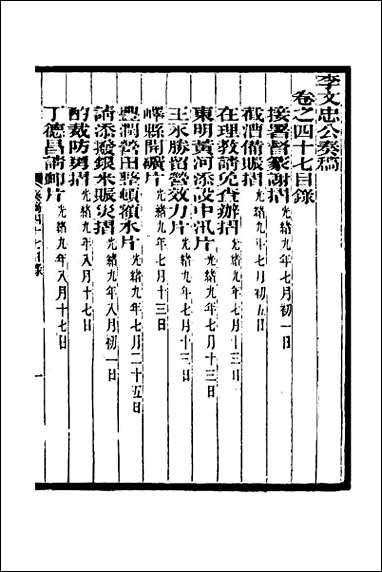 李文忠公奏稿
卷之四十七目錄
接署督篆謝摺 光緒九年七月初一日
截漕備賑摺 光緒九年七月初五日
在理教請免查辦摺 光緒九年七月十三日
東明黃河添設中汛片 光緒九年七月十三日
王永勝留營效力片 光緒九年七月十三日
嶧縣開礦片 光緒九年七月十三日
豐潤營田整頓領水片 光緒九年七月二十五日
請添撥銀米賑災摺 光緒九年八月初一日
酌裁防勇摺 光緒九年八月十七日
丁德昌請卹片 光緒九年八月十七日
奏稿四十七目錄
一